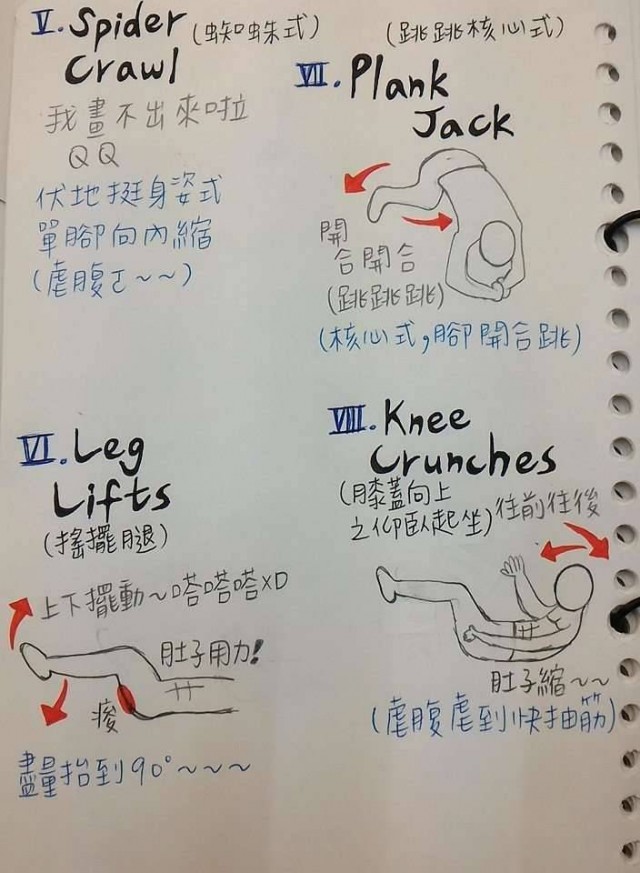 V. Spider (蜘蛛式)
Crawl
我畫不出來啦
QQ
伏地挺身姿式
單腳向內縮
(虐腹ㄛ~~)
(跳跳核心式)
VII. Plank
Jack
開
合開合
(跳跳跳)
(核心式,腳開合跳)
VI. Leg
Lifts
(搖擺腿)
上下擺動~嗒嗒嗒XD
肚子用力!
痠
盡量抬到90°~~~
VIII. Knee
Crunches
(膝蓋向上
之仰臥起坐)
往前往後
肚子縮~~
(虐腹虐到快抽筋)